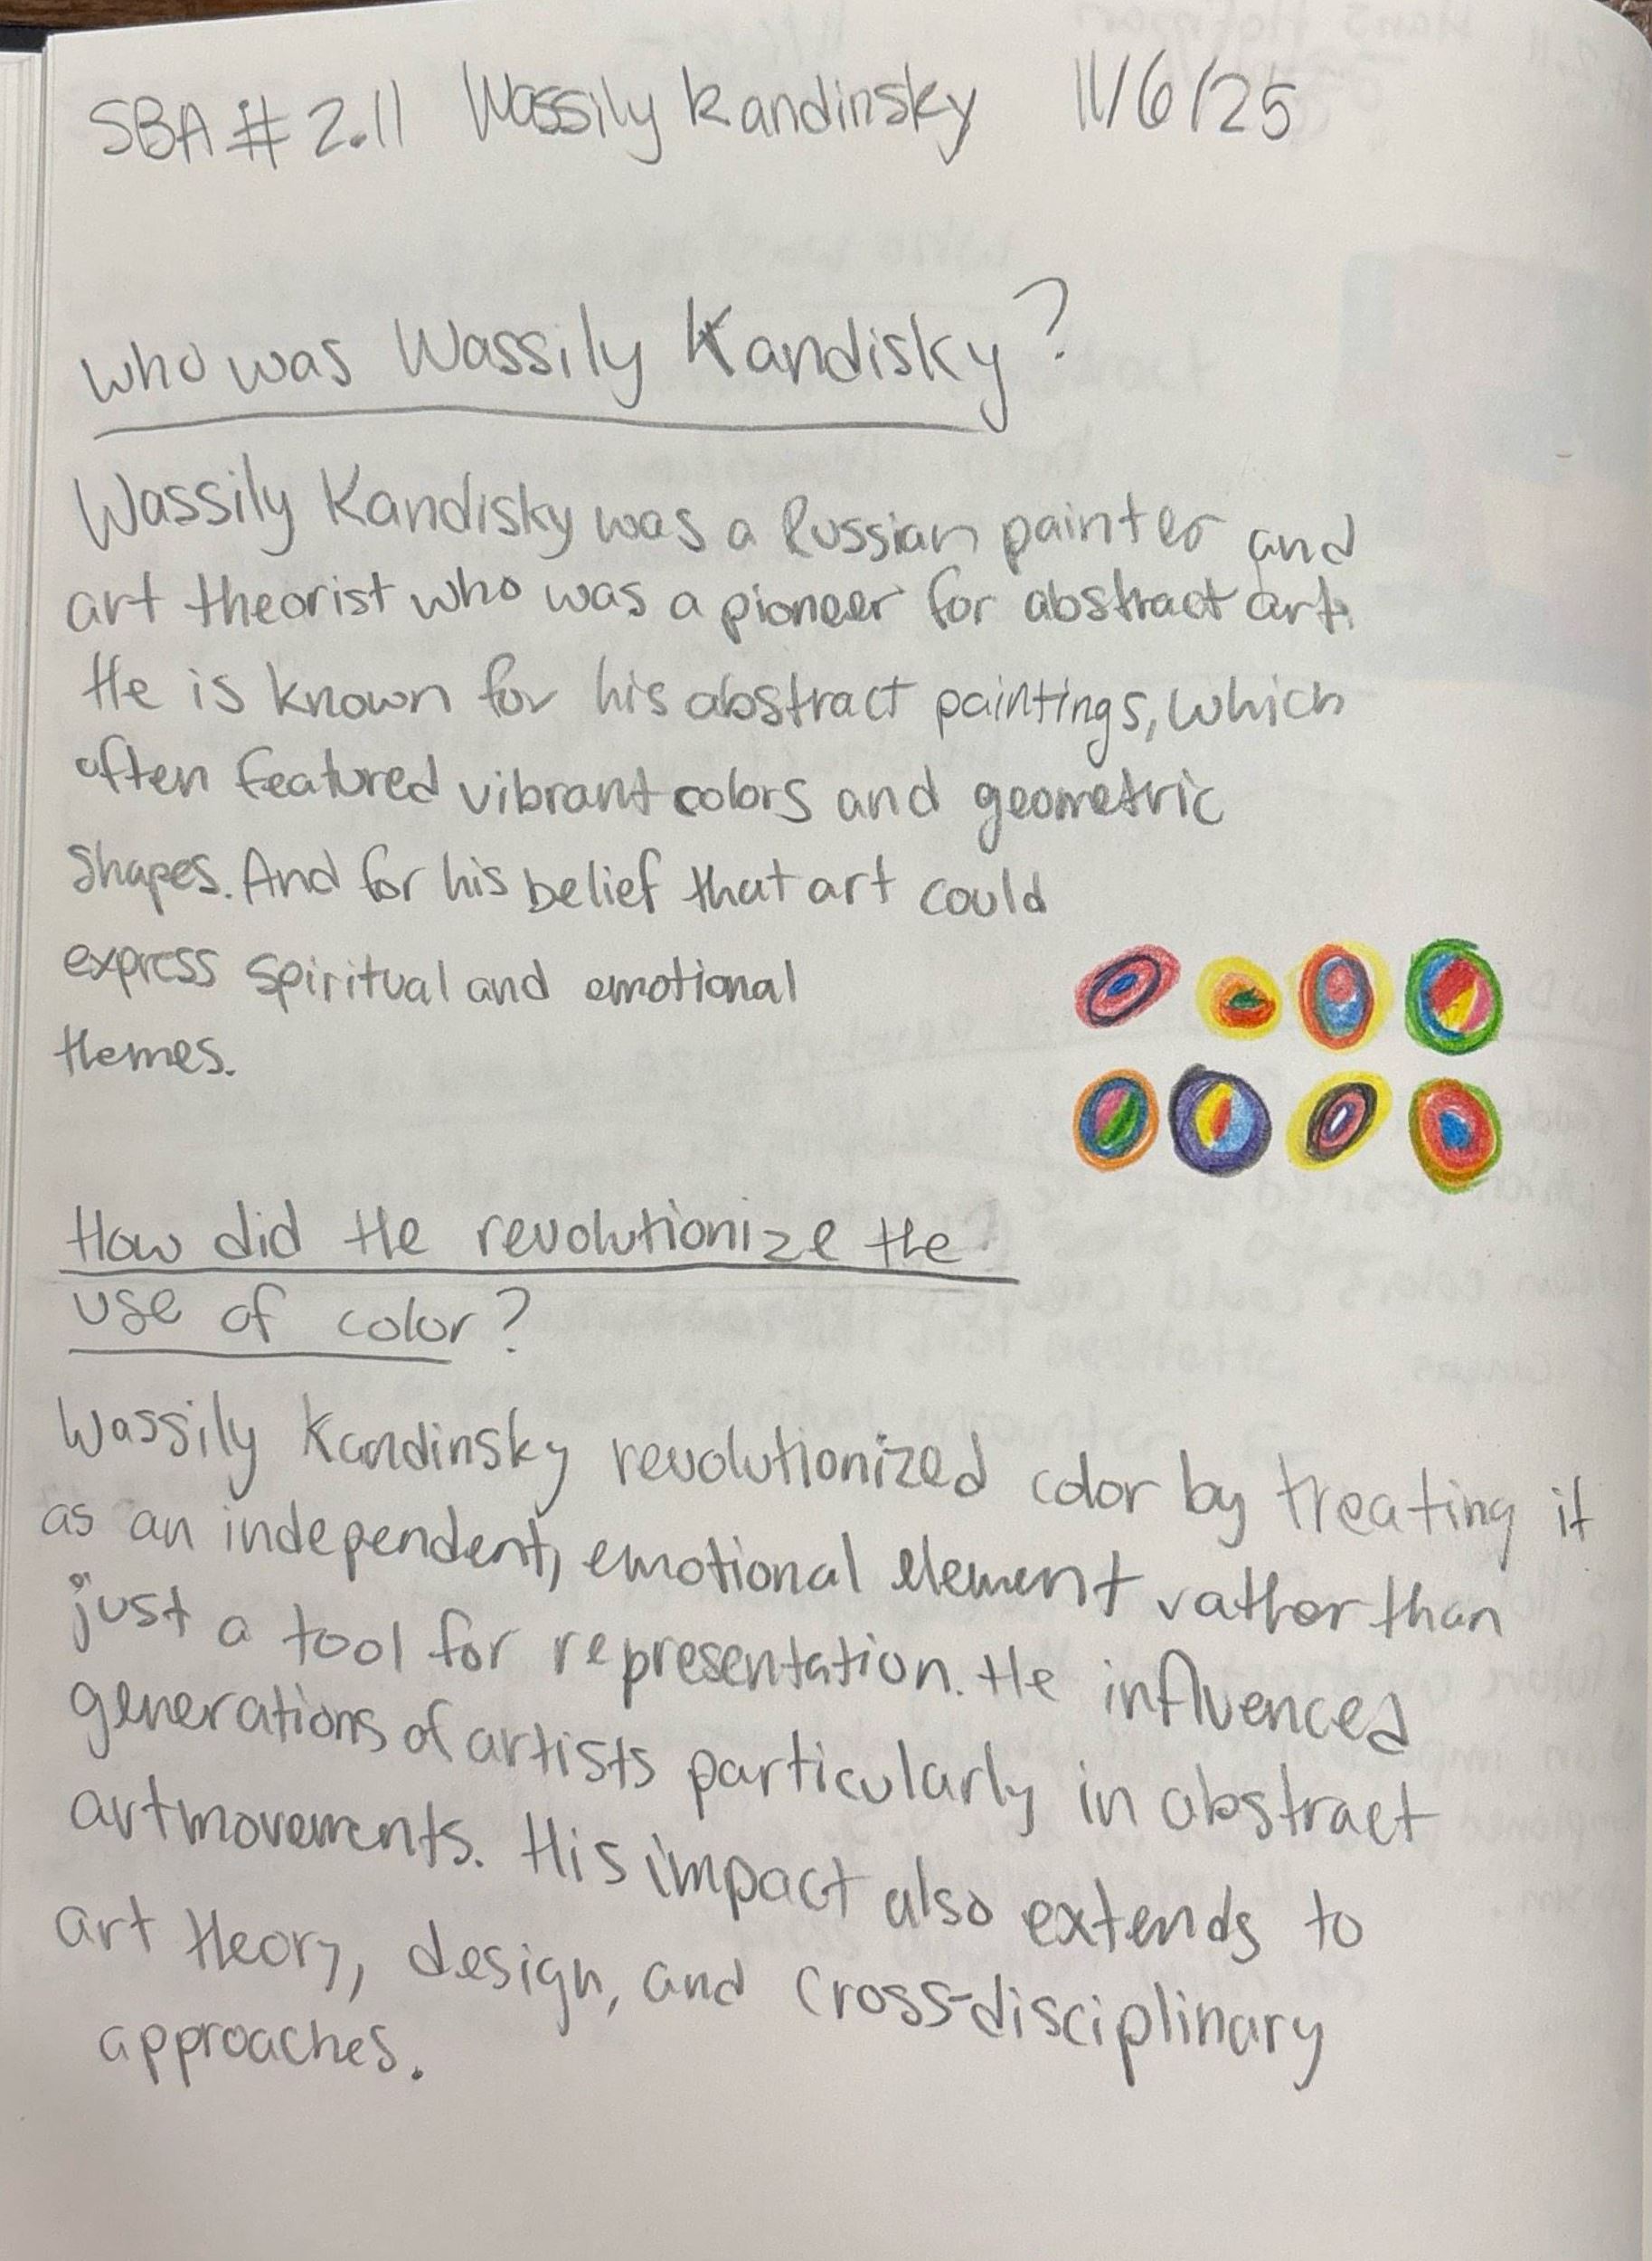 SBA # 2.11 Wassily Kandinsky 11/6/25
who was Wassily Kandisky?
Wassily Kandisky was a Russian painter and
art theorist who was a pioneer for abstract art.
He is known for his abstract paintings, which
often featured vibrant colors and geometric
shapes. And for his belief that art could
express spiritual and emotional
themes.
How did He revolutionize the
use of color?
Wassily Kandinsky revolutionized color by treating it
as an independent, emotional element rather than
just a tool for representation. He influenced
generations of artists particularly in abstract
art movements. His impact also extends to
art theory, design, and cross-disciplinary
approaches.